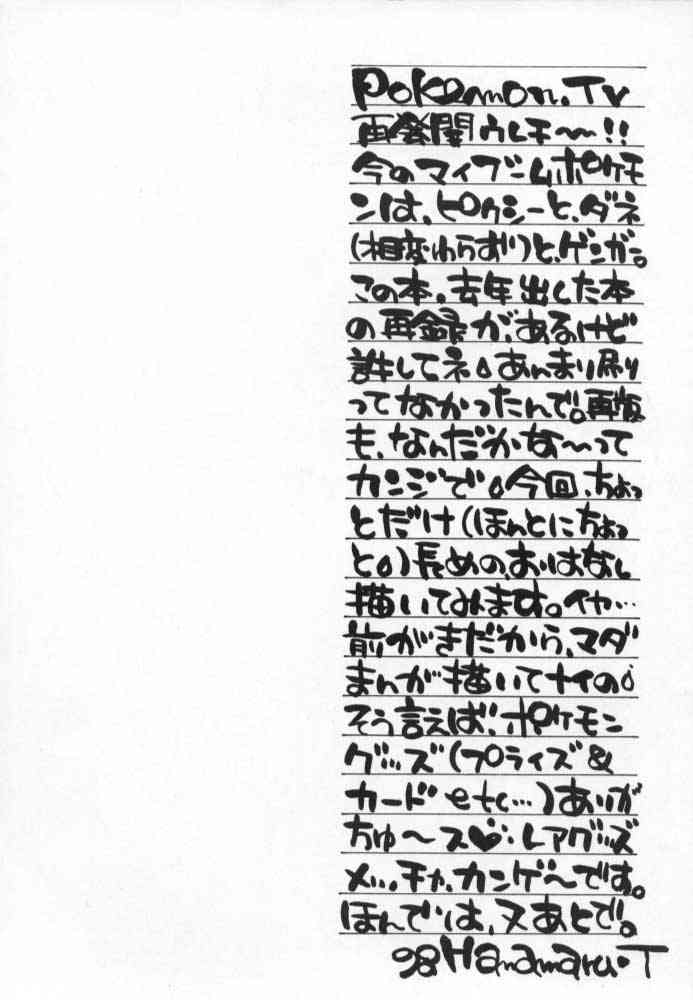 Pokemon.Tv
再発開ウレチ〜〜!!
今のマイブームポケモ
ンは、ピクシーと、ダネ
(相変わらず)と、ゲンガー。
この本。去年出した本
の再録が、あるけど
許してネ。あんまり刷り
ってなかったんで。再版
も、なんだかな〜って
カンジで。今回、ちょっ
とだけ(ほんとにちょっ
と。)長めの、おはなし
描いてみます。イヤ…
前がきだから、マダ
まんが描いてナイの。
そう言えば、ポケモン
グッズ(プライズ&
カード etc…)ありが
ちゅ〜ス♥:レアグッズ
メッチャ、カンゲ〜です。
ほんでは、又あとで。
'98 Hanamaru・T